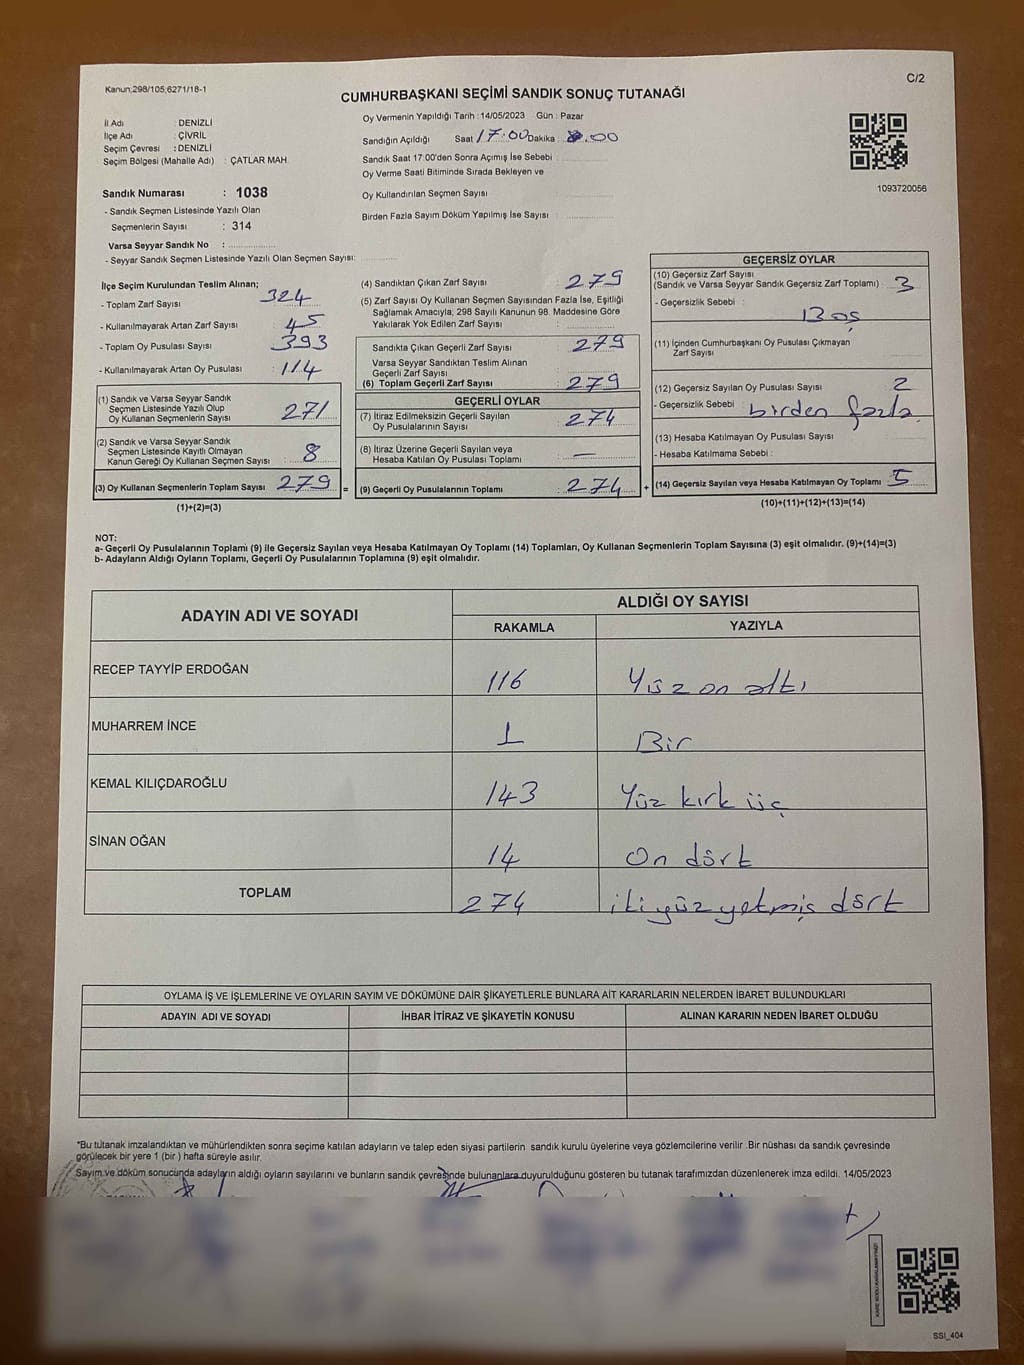 Kanun:298/105,6271/18-1
C/2
CUMHURBAŞKANI SEÇİMİ SANDIK SONUÇ TUTANAĞI
İl Adı : DENİZLİ
İlçe Adı : ÇİVRİL
Seçim Çevresi : DENİZLİ
Seçim Bölgesi (Mahalle Adı) : ÇATLAR MAH.
Sandık Numarası : 1038
- Sandık Seçmen Listesinde Yazılı Olan
Seçmenlerin Sayısı : 314
Varsa Seyyar Sandık No :
- Seyyar Sandık Seçmen Listesinde Yazılı Olan Seçmen Sayısı:
Oy Vermenin Yapıldığı Tarih : 14/05/2023 Gün : Pazar
Sandığın Açıldığı Saat 17:00 Dakika : 00
Sandık Saat 17:00'den Sonra Açımış İse Sebebi
Oy Verme Saati Bitiminde Sırada Bekleyen ve
Oy Kullandırılan Seçmen Sayısı
Birden Fazla Sayım Döküm Yapılmış İse Sayısı
1093720056
İlçe Seçim Kurulundan Teslim Alınan;
- Toplam Zarf Sayısı : 324
- Kullanılmayarak Artan Zarf Sayısı : 45
- Toplam Oy Pusulası Sayısı : 393
- Kullanılmayarak Artan Oy Pusulası : 114
(1) Sandık ve Varsa Seyyar Sandık
Seçmen Listesinde Yazılı Olup
Oy Kullanan Seçmenlerin Sayısı : 271
(2) Sandık ve Varsa Seyyar Sandık
Seçmen Listesinde Kayıtlı Olmayan
Kanun Gereği Oy Kullanan Seçmen Sayısı : 8
(3) Oy Kullanan Seçmenlerin Toplam Sayısı : 279 =
(1)+(2)=(3)
(4) Sandıktan Çıkan Zarf Sayısı : 279
(5) Zarf Sayısı Oy Kullanan Seçmen Sayısından Fazla İse, Eşitliği
Sağlamak Amacıyla; 298 Sayılı Kanunun 98. Maddesine Göre
Yakılarak Yok Edilen Zarf Sayısı :
Sandıkta Çıkan Geçerli Zarf Sayısı : 279
Varsa Seyyar Sandıktan Teslim Alınan
Geçerli Zarf Sayısı :
(6) Toplam Geçerli Zarf Sayısı : 279
GEÇERLİ OYLAR
(7) İtiraz Edilmeksizin Geçerli Sayılan
Oy Pusulalarının Sayısı : 274
(8) İtiraz Üzerine Geçerli Sayılan veya
Hesaba Katılan Oy Pusulası Toplamı : —
(9) Geçerli Oy Pusulalarının Toplamı : 274 +
GEÇERSİZ OYLAR
(10) Geçersiz Zarf Sayısı
(Sandık ve Varsa Seyyar Sandık Geçersiz Zarf Toplamı) : 3
- Geçersizlik Sebebi :
Boş
(11) İçinden Cumhurbaşkanı Oy Pusulası Çıkmayan
Zarf Sayısı
(12) Geçersiz Sayılan Oy Pusulası Sayısı : 2
- Geçersizlik Sebebi : birden fazla
(13) Hesaba Katılmayan Oy Pusulası Sayısı :
- Hesaba Katılmama Sebebi :
(14) Geçersiz Sayılan veya Hesaba Katılmayan Oy Toplamı : 5
(10)+(11)+(12)+(13)=(14)
NOT:
a- Geçerli Oy Pusulalarının Toplamı (9) ile Geçersiz Sayılan veya Hesaba Katılmayan Oy Toplamı (14) Toplamları, Oy Kullanan Seçmenlerin Toplam Sayısına (3) eşit olmalıdır. (9)+(14)=(3)
b- Adayların Aldığı Oyların Toplamı, Geçerli Oy Pusulalarının Toplamına (9) eşit olmalıdır.
ADAYIN ADI VE SOYADI
ALDIĞI OY SAYISI
RAKAMLA YAZIYLA
RECEP TAYYİP ERDOĞAN 116 Yüz on altı
MUHARREM İNCE 1 Bir
KEMAL KILIÇDAROĞLU 143 Yüz kırk üç
SİNAN OĞAN 14 On dört
TOPLAM 274 iki yüz yetmiş dört
OYLAMA İŞ VE İŞLEMLERİNE VE OYLARIN SAYIM VE DÖKÜMÜNE DAİR ŞİKAYETLERLE BUNLARA AİT KARARLARIN NELERDEN İBARET BULUNDUKLARI
ADAYIN ADI VE SOYADI İHBAR İTİRAZ VE ŞİKAYETİN KONUSU ALINAN KARARIN NEDEN İBARET OLDUĞU
*Bu tutanak imzalandıktan ve mühürlendikten sonra seçime katılan adayların ve talep eden siyasi partilerin sandık kurulu üyelerine veya gözlemcilerine verilir. Bir nüshası da sandık çevresinde
görülecek bir yere 1 (bir ) hafta süreyle asılır.
Sayım ve döküm sonucunda adayların aldığı oyların sayılarını ve bunların sandık çevresinde bulunanlara duyurulduğunu gösteren bu tutanak tarafımızdan düzenlenerek imza edildi. 14/05/2023
SSI_404